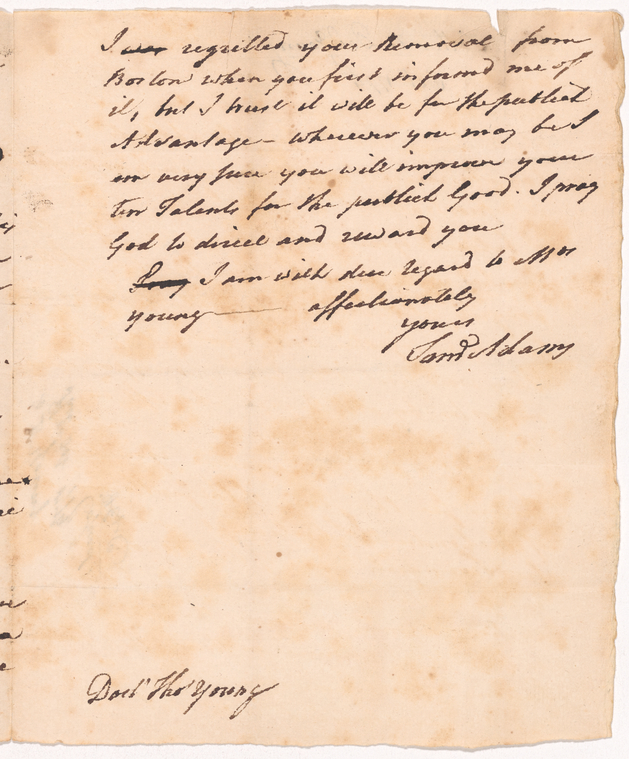 I was regretted your Removal from
Boston when you first informd me of
it, but I trust it will be for the publick
Advantage - wherever you may be I
am very sure you will improve your
ten Talents for the publick Good. I pray
God to direct and reward you
Pray I am with due regard to Mrs
Young affectionately
yours
Saml Adams
Doctr Thos Young